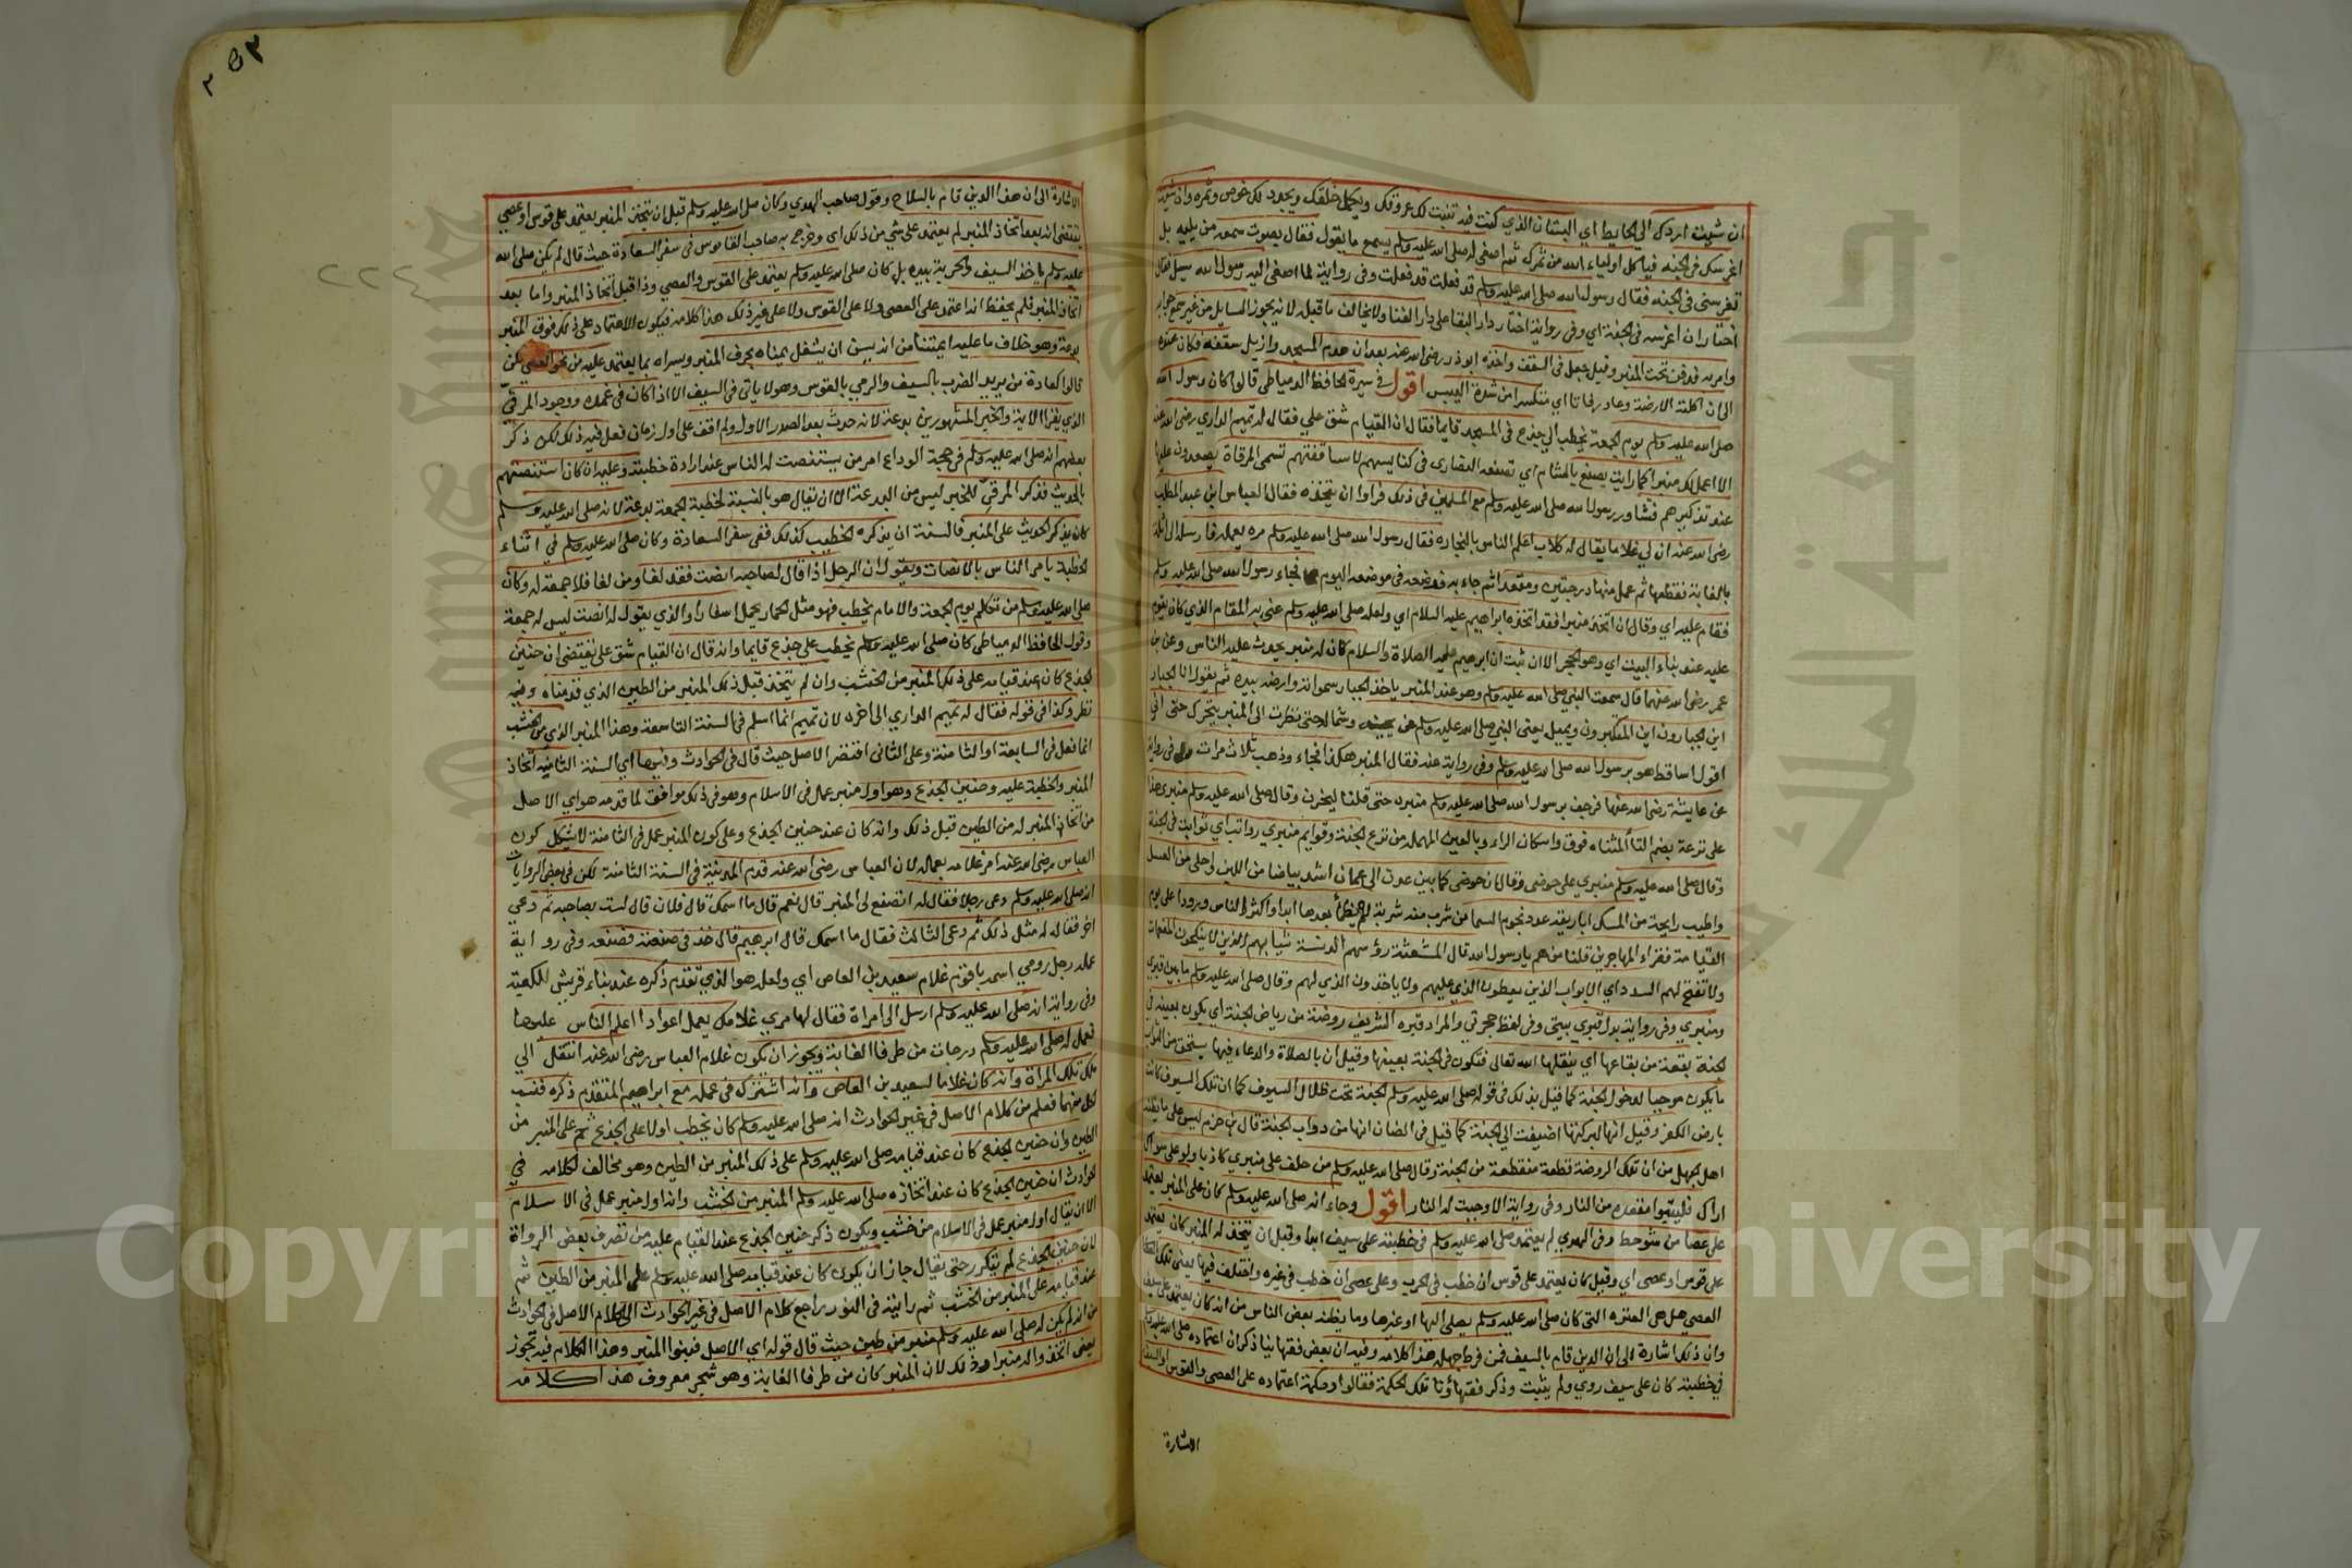 ان شيت اردك الي الحايط اي البستان الذي كنت فيه تنبت لك عروقك ويكمل خلقك ويجدد لك خوص وثمره وان شيت
اغرسك في الجنه فياكل اولياء الله من ثمرك ثم اصغى له صلى الله عليه وسلم يسمع ما يقول فقال بصوت سمعه من يليه بل
تغرسني في الجنه فقال رسول الله صلى الله عليه وسلم قد فعلت قد فعلت وفي رواية لما اصغى اليه رسول الله سيل فقال
اختار ان اغرسه في الجنة اي وفي رواية اختار دار البقا على دار الفنا ولا يخالف ما قبله لانه يجوز
وامر به فدفن تحت المنبر وقيل جعل في السقف واخذه ابو ذر رضي الله عنه بعد ان هدم المسجد وازيل سقفه فكان عنده
الى ان اكلته الارضة وعاد رفاتا اي متكسرا من شدة اليبس اقول في سيرة الحافظ الدمياطي قالوا كان رسول الله
صلى الله عليه وسلم يوم الجمعة يخطب الي جذع في المسجد قايما فقال ان القيام شق علي فقال له تميم الداري رضي الله عنه
الا اعمل لك منبرا كما رايت يصنع بالشام اي تصنعه النصارى في كنايسهم لاساقفتهم تسمى المرقاة يصعدون عليها
عند تذكيرهم فشاور رسول الله صلى الله عليه وسلم مع المسلمين في ذلك فراوا ان يتخذه فقال العباس ابن عبد المطلب
رضي الله عنه ان لي غلاما يقال له كلاب اعلم الناس بالنجارة فقال رسول الله صلى الله عليه وسلم مره يعمله فارسله الى اثلة
بالغابة فقطعها ثم عمل منها درجتين ومقعدا ثم جاء به فوضعه في موضعه اليوم فجاء رسول الله صلى الله عليه وسلم
فقام عليه اي وقال ان اتخذ منبرا فقد اتخذه ابراهيم عليه السلام اي ولعله صلى الله عليه وسلم عنى به المقام الذي كان يقوم
عليه عند بناء البيت اي وهو الحجر الا ان ثبت ان ابراهيم عليه الصلاة والسلام كان له منبر يحدث عليه الناس وعن بن
عمر رضي الله عنهما قال سمعت النبي صلى الله عليه وسلم وهو عند المنبر ياخذ الجبار سمواته وارضه بيده ثم يقول انا الجبار
اين الجبارون اين المتكبرون ويميل يعني النبي صلى الله عليه وسلم عن يمينه وشماله حتى نظرت الى المنبر يتحرك حتى اني
اقول اساقط هو برسول الله صلى الله عليه وسلم وفي رواية عنه فقال المنبر هكذا فجاء وذهب ثلاث مرات وفي رواية
عن عايشة رضي الله عنها فرجف برسول الله صلى الله عليه وسلم منبره حتى قلنا ليخرن وقال صلى الله عليه وسلم منبري هذا
على ترعة بضم التأ المثناه فوق واسكان الراء وبالعين المهملة من ترع الجنة وقوايم منبري رواتب اي ثوابت في الجنة
وقال صلى الله عليه وسلم منبري على حوضي وقال ان حوضي كما بين عدن الى عمان اشد بياضا من اللبن واحلى من العسل
واطيب رايحة من المسك اباريقه عدد نجوم السما من شرب منه شربة لم يظمأ بعدها ابدا واكثر الناس ورودا على يوم
القيامة فقراء المهاجرين قلنا من هم يا رسول الله قال الشعثة رؤسهم الدنسة ثيابهم الذين لا ينكحون المنعمات
ولا تفتح لهم السدد اي الابواب الذين يعطون الذي عليهم ولا ياخذون الذي لهم وقال صلى الله عليه وسلم ما بين قبري
ومنبري وفي رواية بدل قبري بيتي وفي لفظ حجرتي والمراد قبره الشريف روضة من رياض الجنة اي يكون بعينه في
الجنة بقعة من بقاعها اي ينقلها الله تعالى فتكون في الجنة بعينها وقيل ان بالصلاة والدعاء فيها يستحق من الثواب
ما يكون موجبا لدخول الجنة كما قيل بذلك في قوله صلى الله عليه وسلم الجنة تحت ظلال السيوف كما ان تلك السيوف كانت
بارض الكفر وقيل انها لبركتها اضيفت الى الجنة كما قيل في الضان انها من دواب الجنة قال بن حزم ليس على ما يظنه
اهل الجهل من ان تلك الروضة قطعة منقطعة من الجنة وقال صلى الله عليه وسلم من حلف على منبري كاذبا ولو على سواك
اراك فليتبوا مقعده من النار وفي رواية الا وجبت له النار اقول وجاء انه صلى الله عليه وسلم كان على المنبر يعتمد
على عصا من شوحط وفي الهدي لم يعتمد صلى الله عليه وسلم في خطبته على سيف ابدا وقبل ان يتخذ له المنبر كان يعتمد
على قوس او عصى اي وقيل كان يعتمد على قوس ان خطب في الحرب وعلى عصى ان خطب في غيره واختلف فيها يعني تلك
العصي هل هي العنزه التي كان صلى الله عليه وسلم يصلي اليها او غيرها وما يظنه بعض الناس من انه كان يعتمد على سيف
وان ذلك اشارة الى ان الدين قام بالسيف فمن فرط جهله هذا كلامه وفيه ان بعض فقهاينا ذكر ان اعتماده صلى الله عليه وسلم
في خطبته كان على سيف روي ولم يثبت وذكر فقهاؤنا تلك الحكمة فقالوا وحكمة اعتماده على العصى والقوس او السيف
الاشارة
الاشارة الى ان هذا الدين قام بالسلاح وقول صاحب الهدي وكان صلى الله عليه وسلم قبل ان يتخذ المنبر يعتمد على قوس او عصى
يقتضي انه بعد اتخاذ المنبر لم يعتمد على شي من ذلك اي وخرج به صاحب القاموس في سفر السعادة حيث قال لم يكن صلى الله
عليه وسلم ياخذ السيف والحربة بيده بل كان صلى الله عليه وسلم يعتمد على القوس والعصي وذا قبل اتخاذ المنبر واما بعد
اتخاذ المنبر فلم يحفظ انه اعتمد على العصى ولا على القوس ولا على غير ذلك هذا كلامه فيكون الاعتماد على ذلك فوق المنبر
بدعة وهو خلاف ما عليه ايمتنا من انه يسن ان يشغل يمناه بحرف المنبر ويسراه بما يعتمد عليه من نحو العصى لكن
قالوا كعادة من يريد الضرب بالسيف والرمي بالقوس وهو لا ياتي في السيف الا اذا كان في غمده ووجود المرقي
الذي يقرا الاية والخبر المشهورين بدعة لانه حدث بعد الصدر الاول ولم اقف على اول زمان فعل فيه ذلك لكن ذكر
بعضهم انه صلى الله عليه وسلم في حجة الوداع امر من يستنصت له الناس عند ارادة خطبته وعليه ان كان استنصتهم
بالحديث فذكر المرقي للخبر ليس من البدعة الا ان يقال هو بالنسبة لخطبة الجمعة بدعة لانه صلى الله عليه وسلم
كان يذكر الحديث على المنبر فالسنة ان يذكره الخطيب كذلك ففي سفر السعادة وكان صلى الله عليه وسلم في اثناء
الخطبة يامر الناس بالانصات ويقول ان الرجل اذا قال لصاحبه انصت فقد لغا ومن لغا فلا جمعة له وكان
صلى الله عليه وسلم من تكلم يوم الجمعة والامام يخطب فهو مثل الحمار يحمل اسفارا والذي يقول له انصت ليس له جمعة
وقول الحافظ الدمياطي كان صلى الله عليه وسلم يخطب على جذع قايما وانه قال ان القيام شق علي يقتضي ان حنين
الجذع كان عند قيامه على ذلك المنبر من الخشب وان لم يتخذ قبل ذلك المنبر من الطين الذي قدمناه وفيه
نظر وكذا في قوله فقال له تميم الداري الى اخره لان تميم انما اسلم في السنة التاسعة وهذا المنبر الذي من الخشب
انما فعل في السابعة او الثامنة وعلى الثاني اقتصر الاصل حيث قال في الحوادث وفيها اي السنة الثامنة اتخاذ
المنبر والخطبة عليه وحنين الجذع وهو اول منبر عمل في الاسلام وهو في ذلك موافق لما قدمه هو اي الاصل
من اتخاذ المنبر له من الطين قبل ذلك وانه كان عند حنين الجذع وعلى كون المنبر عمل في الثامنة لا يشكل كون
العباس رضي الله عنه امر غلامه بعمله لان العباس رضي الله عنه قدم المدينة في السنة الثامنة لكن في بعض الروايات
انه صلى الله عليه وسلم دعى رجلا فقال له اتصنع لي المنبر قال نعم قال ما اسمك قال فلان قال لست بصاحبه ثم دعى
اخر فقال له مثل ذلك ثم دعى الثالث فقال ما اسمك قال ابراهيم قال خذ في صنعته فصنعه وفي رواية
عمله رجل رومي اسمه باقوم غلام سعيد بن العاص اي ولعله هو الذي تقدم ذكره عند بناء قريش الكعبة
وفي رواية انه صلى الله عليه وسلم ارسل الى امراة فقال لها مري غلامك يعمل اعوادا اعلم الناس عليها
فعمل له صلى الله عليه وسلم درجات من طرفا الغابة ويجوز ان يكون غلام العباس رضي الله عنه انتقل الي
ملك تلك المراة وانه كان غلاما لسعيد بن العاص وانه اشترك في عمله مع ابراهيم المتقدم ذكره فنسب
لكل منهما فعلم من كلام الاصل في غير الحوادث انه صلى الله عليه وسلم كان يخطب اولا على الجذع ثم على المنبر من
الطين وان حنين الجذع كان عند قيامه صلى الله عليه وسلم على ذلك المنبر من الطين وهو مخالف لكلامه في
الحوادث ان حنين الجذع كان عند اتخاذه صلى الله عليه وسلم المنبر من الخشب وانه اول منبر عمل في الاسلام
الا ان يقال اول منبر عمل في الاسلام من خشب ويكون ذكر حنين الجذع عند القيام عليه من تصرف بعض الرواة
لان حنين الجذع لم يتكرر حتى يقال جاز ان يكون كان عند قيامه صلى الله عليه وسلم على المنبر من الطين ثم
عند قيامه على المنبر من الخشب ثم رايته في النور يراجع كلام الاصل في غير الحوادث الى كلام الاصل في الحوادث
من انه لم يكن له صلى الله عليه وسلم منبر من طين حيث قال قوله اي الاصل فبنوا المنبر وهذا الكلام فيه تجوز
يعني اتخذوا له منبرا وذلك لان المنبر كان من طرفا الغابة وهو شجر معروف هذا كلامه
٢٢٤
Copyright © King Saud University
جامعة الملك سعود